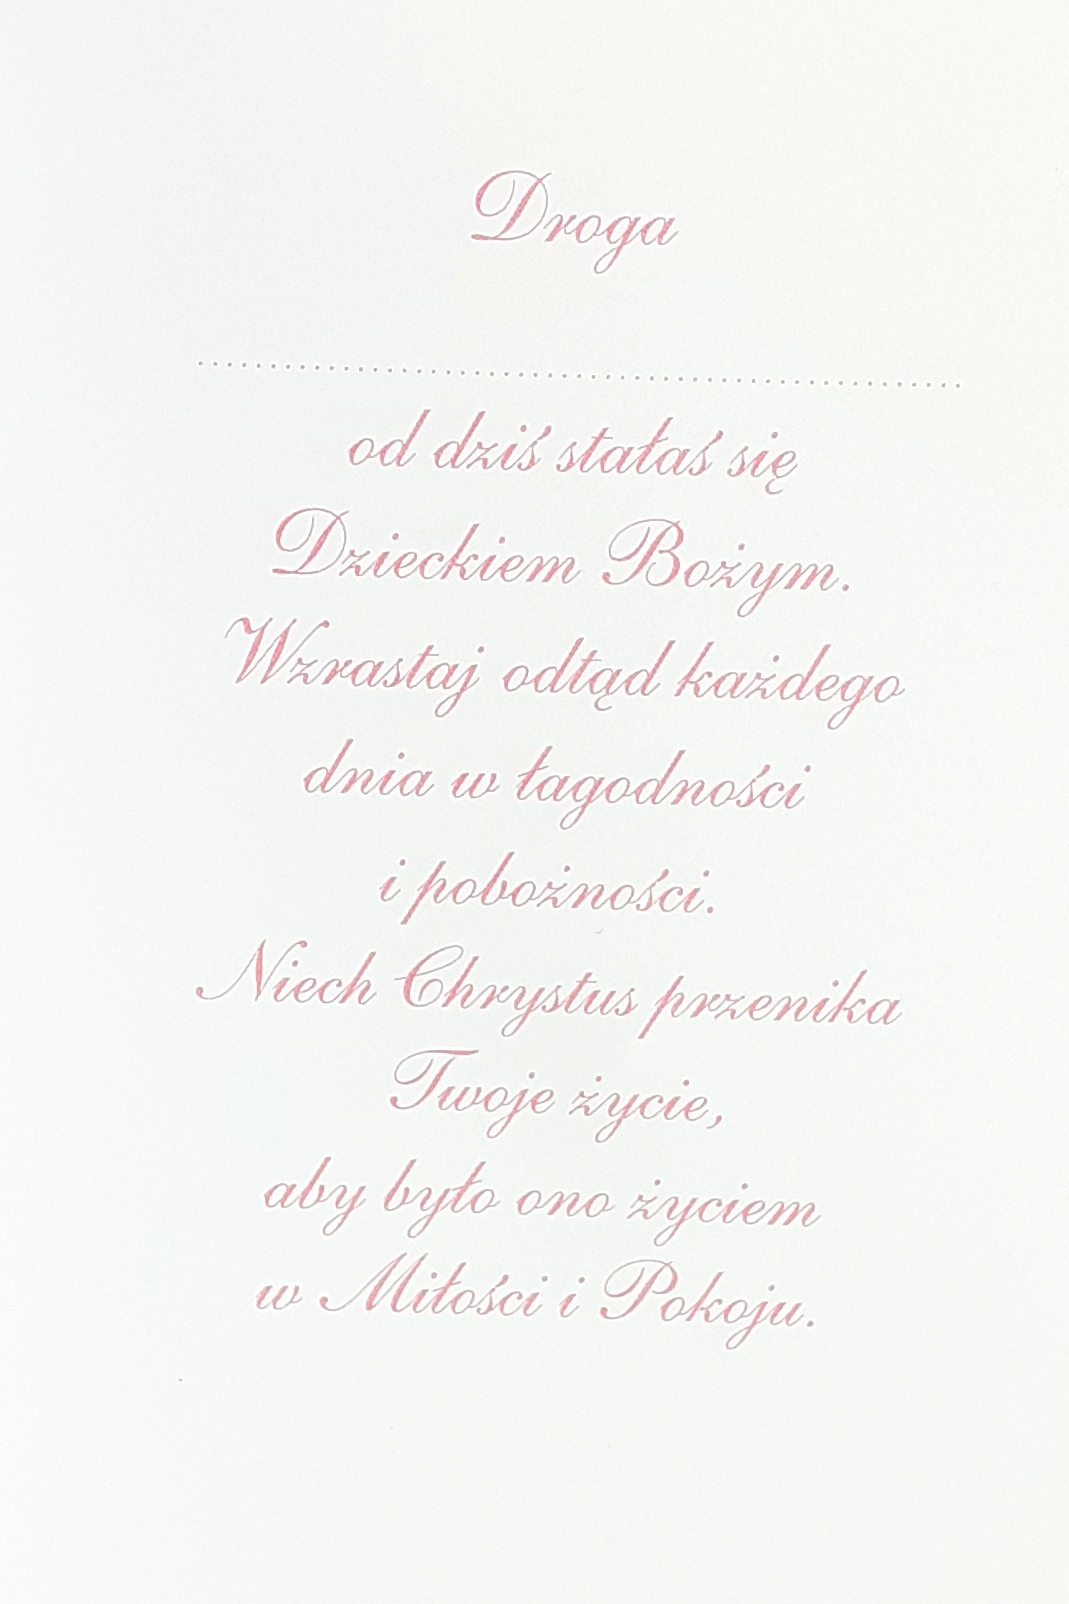 Droga
................................................
od dziś stałaś się
Dzieckiem Bożym.
Wzrastaj odtąd każdego
dnia w łagodności
i pobożności.
Niech Chrystus przenika
Twoje życie,
aby było ono życiem
w Miłości i Pokoju.